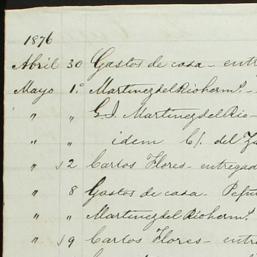 1876
Abril 30 Gastos de casa - entr
Mayo 1º Martinez del Rio hermº -
" " G. I. Martinez del Rio -
" " idem C/. del
" 52 Carlos Flores - entregad
" 8 Gastos de casa.
" " Martinez del Rio hermº
" 59 Carlos Flores - entre